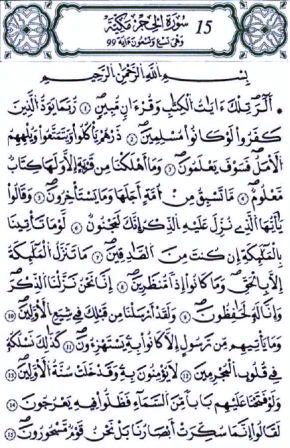 سُورَةُ الحِجْرِ مَكِّيَّة 15
وَهِىَ تِسْعٌ وَتِسْعُونَ ءَايَة 99
بِسْمِ اللَّهِ الرَّحْمَنِ الرَّحِيمِ
الٓرۚ تِلْكَ ءَايَٰتُ الْكِتَٰبِ وَقُرْءَانٍ مُّبِينٍ ١ رُّبَمَا يَوَدُّ الَّذِينَ
كَفَرُوا لَوْ كَانُوا مُسْلِمِينَ ٢ ذَرْهُمْ يَأْكُلُوا وَيَتَمَتَّعُوا وَيُلْهِهِمُ
الْأَمَلُ فَسَوْفَ يَعْلَمُونَ ٣ وَمَا أَهْلَكْنَا مِن قَرْيَةٍ إِلَّا وَلَهَا كِتَابٌ
مَّعْلُومٌ ٤ مَّا تَسْبِقُ مِنْ أُمَّةٍ أَجَلَهَا وَمَا يَسْتَأْخِرُونَ ٥ وَقَالُوا
يَٰأَيُّهَا الَّذِى نُزِّلَ عَلَيْهِ الذِّكْرُ إِنَّكَ لَمَجْنُونٌ ٦ لَّوْ مَا تَأْتِينَا
بِالْمَلَٰئِكَةِ إِن كُنتَ مِنَ الصَّٰدِقِينَ ٧ مَا تَنَزَّلُ الْمَلَٰئِكَةُ
إِلَّا بِالْحَقِّ وَمَا كَانُوا إِذًا مُّنظَرِينَ ٨ إِنَّا نَحْنُ نَزَّلْنَا الذِّكْرَ
وَإِنَّا لَهُ لَحَٰفِظُونَ ٩ وَلَقَدْ أَرْسَلْنَا مِن قَبْلِكَ فِى شِيَعِ الْأَوَّلِينَ ١٠
وَمَا يَأْتِيهِم مِّن رَّسُولٍ إِلَّا كَانُوا بِهِ يَسْتَهْزِءُونَ ١١ كَذَٰلِكَ نَسْلُكُهُ
فِى قُلُوبِ الْمُجْرِمِينَ ١٢ لَا يُؤْمِنُونَ بِهِ وَقَدْ خَلَتْ سُنَّةُ الْأَوَّلِينَ ١٣
وَلَوْ فَتَحْنَا عَلَيْهِم بَابًا مِّنَ السَّمَاءِ فَظَلُّوا فِيهِ يَعْرُجُونَ ١٤
لَقَالُوا إِنَّمَا سُكِّرَتْ أَبْصَٰرُنَا بَلْ نَحْنُ قَوْمٌ مَّسْحُورُونَ ١٥